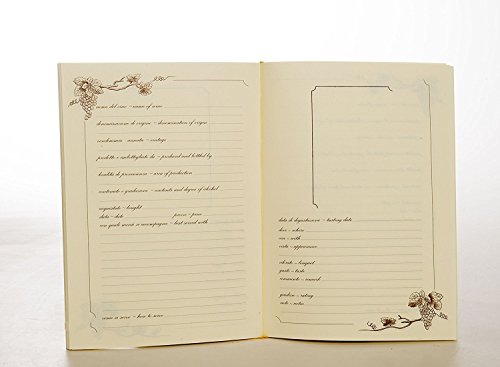 nome del vino - name of wine
denominazione di origine - denomination of origin
vendemmia - annata - vintage
prodotto e imbottigliato da - produced and bottled by
località di provenienza - area of production
contenuto e gradazione - contents and degree of alcohol
acquistato - bought
data - date prezzo - price
con quale unirlo si accompagna - best served with
come si serve - how to serve
data di degustazione - tasting date
dove - where
con - with
vista - appearance
olfatto - bouquet
gusto - taste
commento - remark
giudizio - rating
note - notes